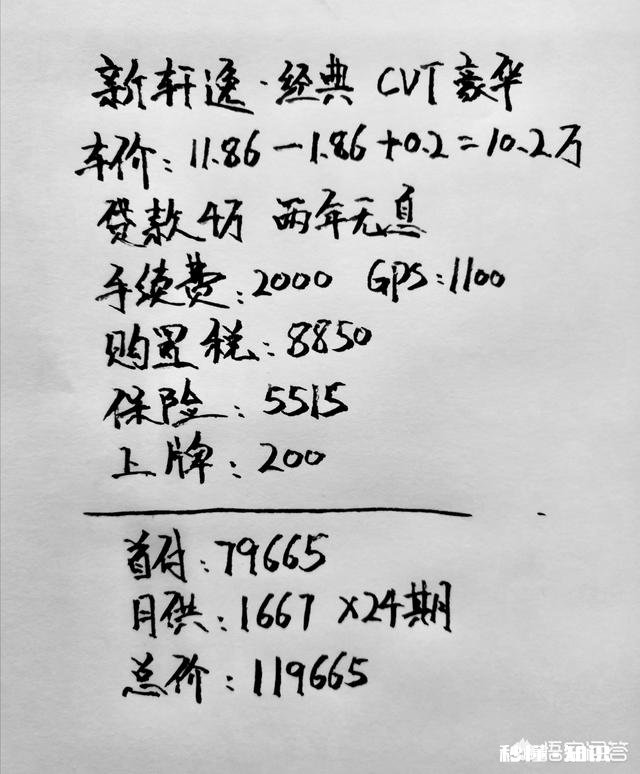 新轩逸·经典 CVT豪华
车价：11.86-1.86+0.2=10.2万
贷款4万 两年无息
手续费：2000 GPS：1100
购置税：8850
保险：5515
上牌：200
首付：79665
月供：1667 ×24期
总价：119665